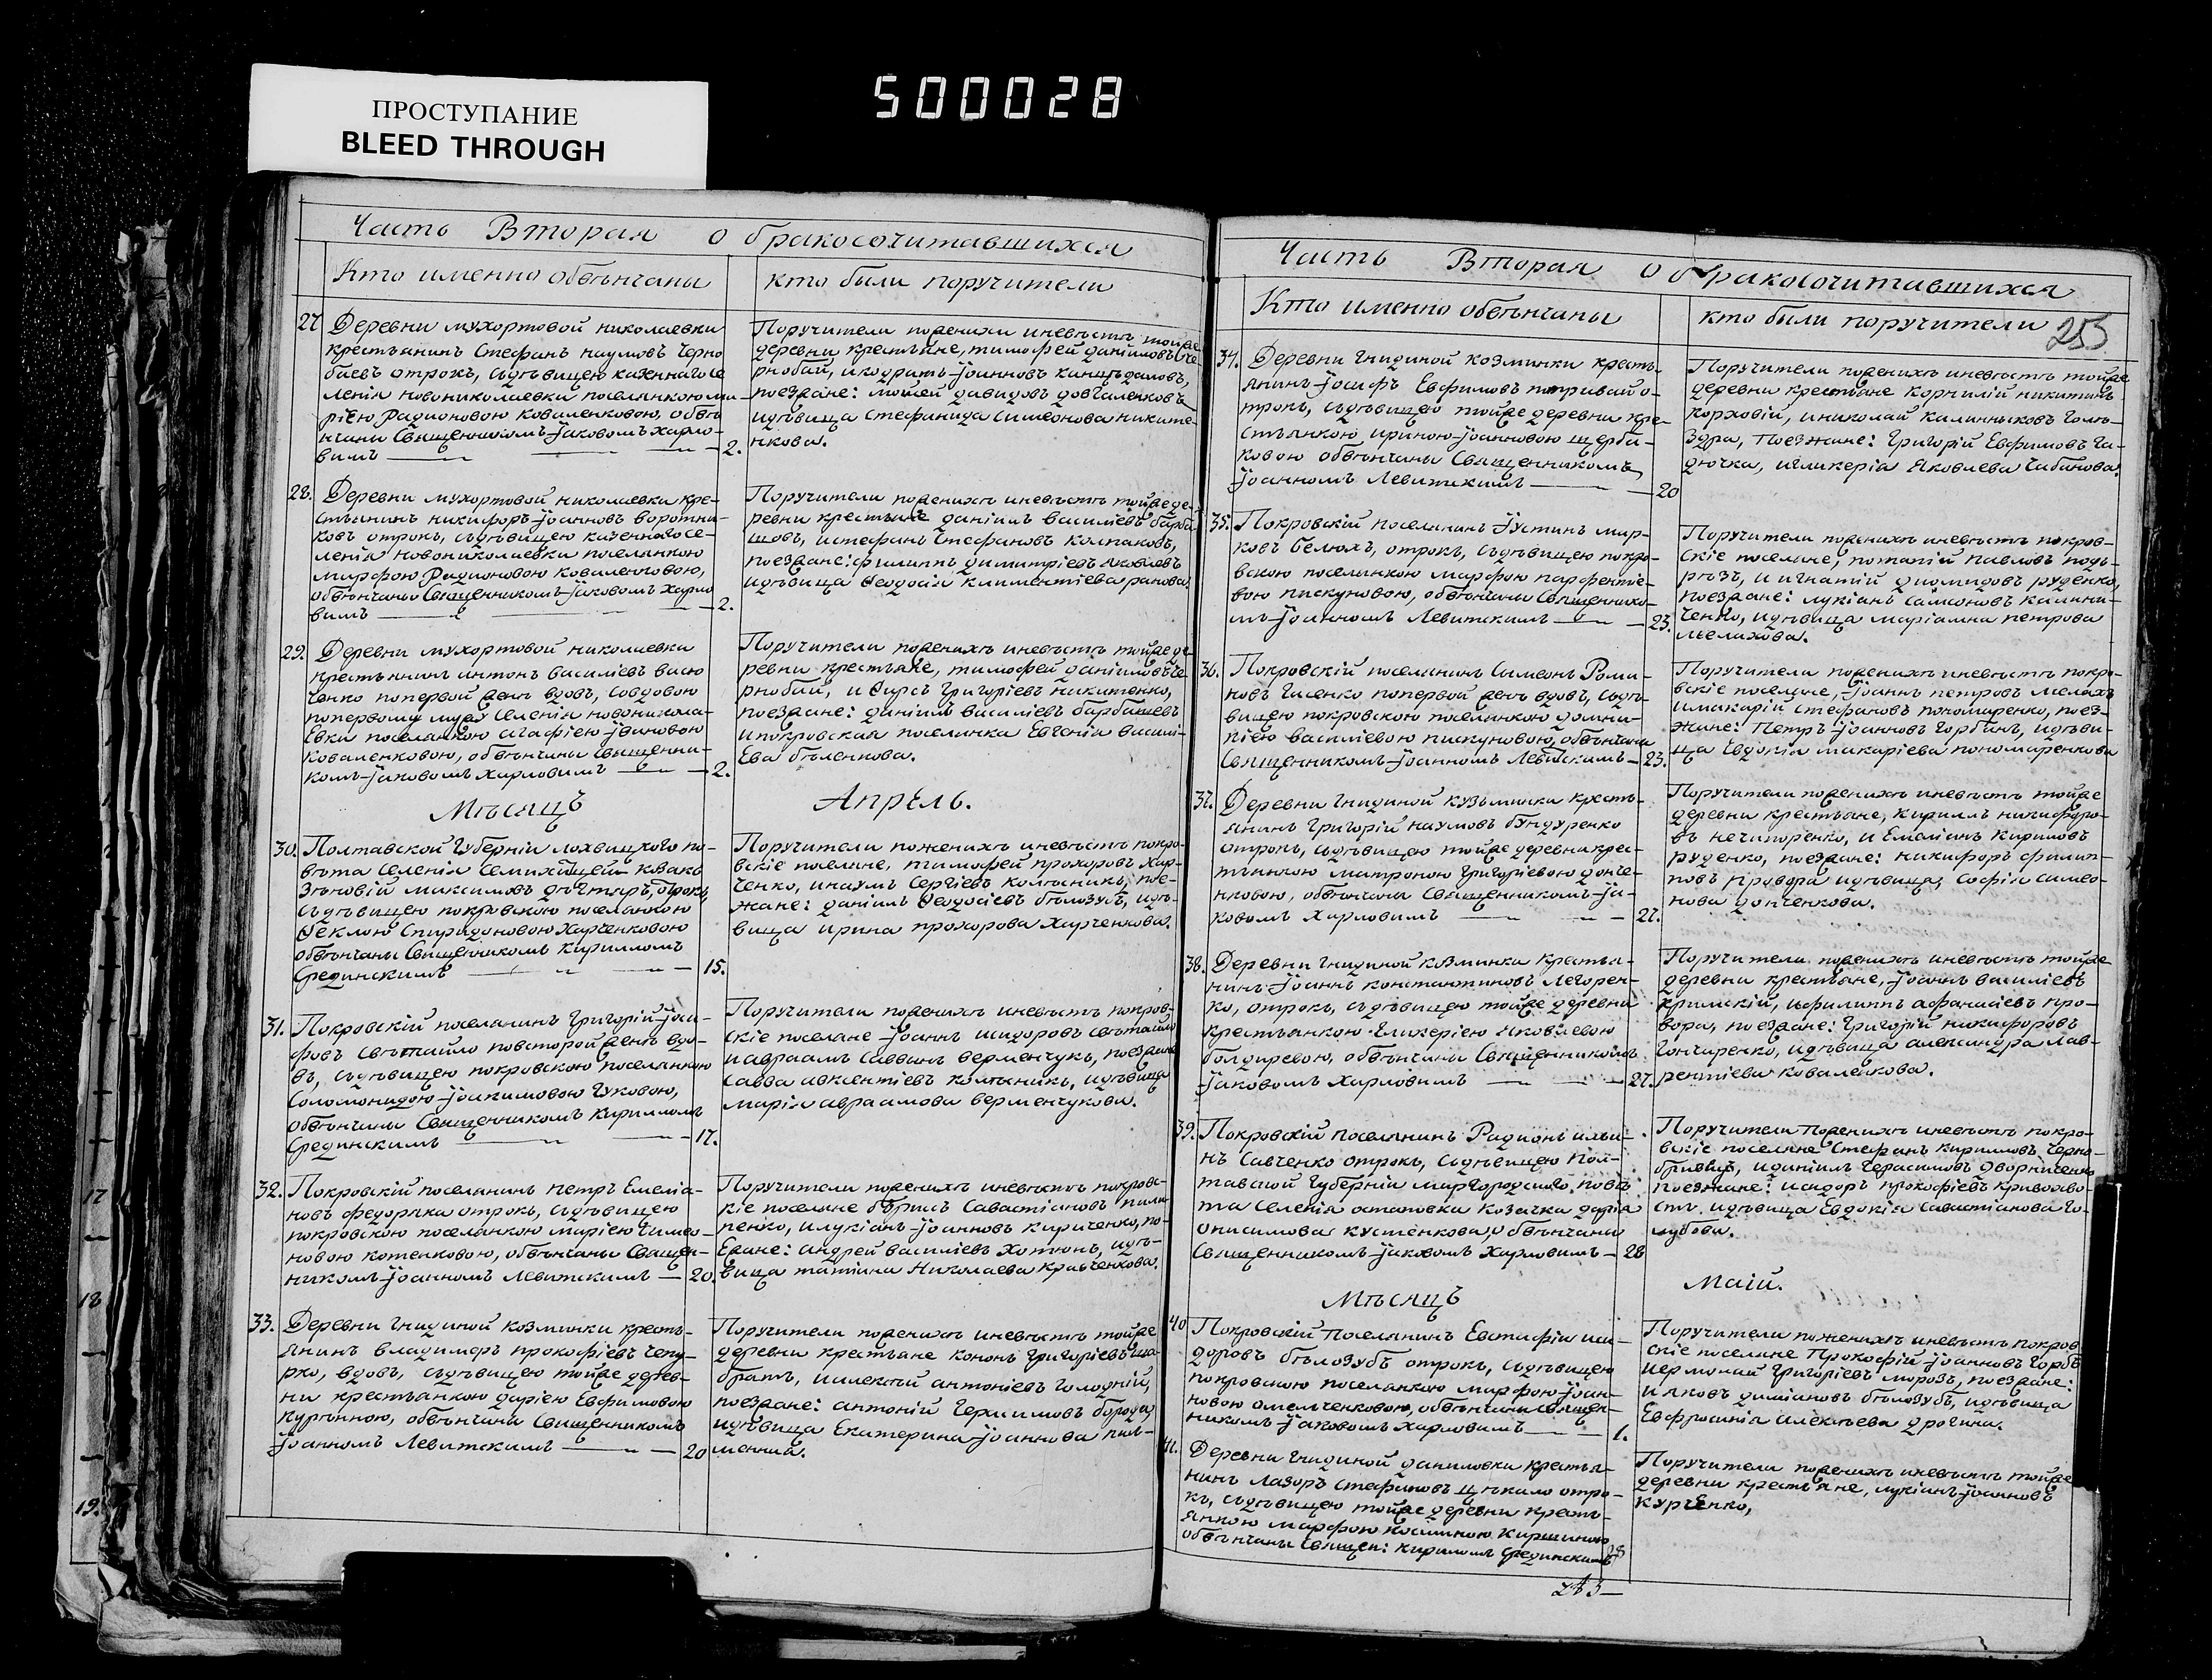 ПРОСТУПАНИЕ
BLEED THROUGH
500028
Часть Вторая о бракосочитавшихся
Кто именно обвѣнчаны
кто были поручители
27 Деревни мухортовой николаевки
крестьянинъ Стефанъ наумовъ Черно
баевъ отрокъ, съдѣвицею казеннагосе
ленія новониколаевки поселянкою ма-
ріею Радионовою коваленковою, обвѣ
нчаны Священникомъ Іаковомъ харло-
вимъ 2.
Поручители поженихѣ иневѣстѣ тойже
деревни крестьяне, тимофей даніиловъ Че
рнобай, икодратъ Іоанновъ
поезжане: мойсей давидовъ довгаленковъ
идѣвица Стефанида Симеонова никите-
нкова.
28. Деревни мухортовой николаевки кре-
стьянинъ никифоръ Іоанновъ воротни-
ковъ отрокъ, съдѣвицею казеннагосе-
ленія новониколаевки поселянкою
марфою Радионовою коваленковою,
обвѣнчаны Священникомъ Іаковомъ Харло
вимъ 2.
Поручители поженихѣ иневѣстѣ тойжеде-
ревни крестьяне даніилъ василіевъ барба
шовъ, истефанъ Стефановъ колпаковъ,
поезжане: филиппъ димитріевъ яковлевъ
идѣвица Ѳеодосія климентіева ранова.
29. Деревни мухортовой николаевки
крестьянинъ антонъ василіевъ васю
ченко попервой женѣ вдовъ, совдовою
попервому мужу Селенія новоникола-
Евки поселянкою агафіею Івановою
Коваленковою, обвѣнчаны Священни-
комъ Іаковомъ Харловимъ 2.
Поручители поженихѣ иневѣстѣ тойжеде
ревни крестьяне, тимофей даніиловъ Че
рнобай, и Ѳирсъ Григоріевъ никитенко,
поезжане: даніилъ василіевъ барбашевъ
ипокровская поселянка Евгенія василі-
Ева бѣленкова.
Мѣсяцъ
Апрель.
30. Полтавской Губерніи лохвицкого по-
вѣта Селенія козакъ
Зѣновій максимовъ дѣгтяръ, отрокъ,
съдѣвицею покровскою поселянкою
Ѳеклою Спиридоновою Харченковою
обвѣнчаны Священникомъ кирилломъ
Срединскимъ 15.
Поручители поженихѣ иневѣстѣ покро-
вскіе поселяне, тимофей прохоровъ хар-
ченко, инаумъ Сергіевъ колѣсникъ, пое-
жане: даніилъ Ѳеодосіевъ бѣлозубъ, идѣ-
вица ирина прохорова харченкова.
31. Покровскій поселянинъ Григорій Іоси-
фовъ Свѣтайло повсторой женѣ вдо-
въ, съдѣвицею покровскою поселянкою
Соломонидою Іоакимовою Гуковою,
обвѣнчаны Священникомъ Кирилломъ
Срединскимъ 17.
Поручители поженихѣ иневѣстѣ покров-
скіе поселяне Іоаннъ исидоровъ свѣтайло
иавраамъ Саввинъ верменчукъ, поезжане
Савва авксентіевъ колѣсникъ, идѣвица
марія авраамова верменчукова.
32. Покровскій поселянинъ петръ Емелія-
новъ федоряка отрокъ, съдѣвицею
покровскою поселянкою маріею Симео-
новою котенковою, обвѣнчаны Священ-
никомъ Іоанномъ Левитскимъ 20.
Поручители поженихѣ иневѣстѣ покровс-
кіе поселяне борисъ Савастіановъ пили-
пенко, илукіанъ Іоанновъ кириченко, по-
Ежане: андрей василіевъ Хотюнъ, идѣ-
вица татіана Николаева кравченкова.
33. Деревни Гнидиной козминки кресть-
янинъ владимеръ прокофіевъ чепу-
рко, вдовъ, съдѣвицею тойже дерев-
ни крестьянкою даріею Евфимовою
курѣнною, обвѣнчаны Священникомъ
Іоанномъ Левитскимъ 20
Поручители поженихѣ иневѣстѣ тойже
деревни крестьяне кононъ Григоріевъ
иалексій антоніевъ Голодній,
поезжане: антоній Герасимовъ борода,
идѣвица Екатерина Іоаннова
Часть Вторая о бракосочитавшихся
Кто именно обвѣнчаны
кто были поручители
255
34. Деревни Гнидиной козминки кресть-
янинъ Іосифъ Евфимовъ о-
трокъ, съдѣвицею тойже деревни кре-
стьянкою ириною Іоанновою щерба-
ковою обвѣнчаны Священникомъ
Іоанномъ Левитскимъ 20
Поручители поженихѣ иневѣстѣ тойже
деревни крестьяне корнилій никитинъ
корховій, иниколай калинниковъ Голо-
Поезжане: Григорій Евфимовъ Га-
дючка, игликерія Яковлева Чабанова.
35. Покровскій поселянинъ Іустинъ мар-
ковъ белюхъ, отрокъ, съдѣвицею покро-
вскою поселянкою марфою парфентіе-
вою пискуновою, обвѣнчаны Священнико-
мъ Іоанномъ Левитскимъ 23.
Поручители поженихѣ иневѣстѣ покров-
скіе поселяне, потапій павловъ подъ-
рѣзъ, и игнатій диомидовъ руденко,
поезжане: лукіанъ Самсоновъ калини-
ченко, идѣвица маріамна петрова
мелахова.
36. Покровскій поселянинъ Симеонъ Рома-
новъ Гисенко попервой женѣ вдовъ, съдѣ-
вицею покровскою поселянкою домни-
кіею василіевою пискуновою, обвѣнчаны
Священникомъ Іоанномъ Левитскимъ 23.
Поручители поженихѣ иневѣстѣ покро-
вскіе поселяне, Іоаннъ петровъ мелахъ
имакарій стефановъ пономаренко, поез-
жане: петръ Іоанновъ Горбань, идѣви-
ца Евдокія макаріева пономаренкова
37. Деревни Гнидиной кузьминки кресть-
янинъ Григорій наумовъ бундуренко
отрокъ, съдѣвицею тойже деревни крес-
тьянкою матроною Григоріевою донче-
нковою, обвѣнчаны Священникомъ Іа-
ковомъ Харловимъ 27.
Поручители поженихѣ иневѣстѣ тойже
деревни крестьяне, кириллъ никифоро-
въ нечипоренко, и Емеліанъ Кириловъ
руденко, поезжане: никифоръ филип-
повъ провора идѣвица, Софія Симео-
нова донченкова.
38. Деревни Гнидиной козминки крестья-
нинъ Іоаннъ константиновъ Легорен-
ко, отрокъ, съдѣвицею тойже деревни
крестьянкою Гликеріею яковлевою
болдиревою, обвѣнчаны Священникомъ
Іаковомъ Харловимъ 27.
Поручители поженихѣ иневѣстѣ тойже
деревни крестьяне, Іоаннъ василіевъ
кримскій, ифилиппъ афанасіевъ про-
вора, поезжане: Григорій никифоровъ
Гончаренко, идѣвица александра Лав-
рентіева коваленкова.
39. Покровскій поселянинъ Радионъ ильи-
нъ Савченко отрокъ, съдѣвицею Пол-
тавской Губерніи миргородского повѣ
та Селенія остаповки козачка дарія
онисимова кустенкова, обвѣнчаны
Священникомъ Іаковомъ Харловимъ 28
Поручители поженихѣ иневѣстѣ покро-
вскіе поселяне Стефанъ кириловъ Черно-
бривецъ, иданіилъ Герасимовъ Дворниченко
поезжане: исидоръ прокофіевъ кривохво-
стъ идѣвица Евдокія Савастіанова Го-
лубова.
Мѣсяцъ
Маій.
40 Покровскій Поселянинъ Евстафій иси-
доровъ бѣлозубъ отрокъ, съдѣвицею
покровскою поселянкою марфою Іоан-
новою омельченковою, обвѣнчаны Священ-
никомъ Іаковомъ Харловимъ 1.
Поручители поженихѣ иневѣстѣ покров
скіе поселяне Прокофій Іоанновъ Горбъ
иермолай Григоріевъ морозъ, поезжане:
ияковъ диміановъ бѣлозубъ, идѣвица
Евфросинія алексѣева дрогина.
41. Деревни Гнидиной даниловки крестья-
нинъ Лазоръ Стефановъ отро-
къ, съдѣвицею тойже деревни кресть-
янкою марфою Косминою Киршиною
обвѣнчаны Священ: кириломъ Срединскимъ 28
Поручители поженихѣ иневѣстѣ тойже
деревни крестьяне, лукіанъ Іоанновъ
курЕнко,